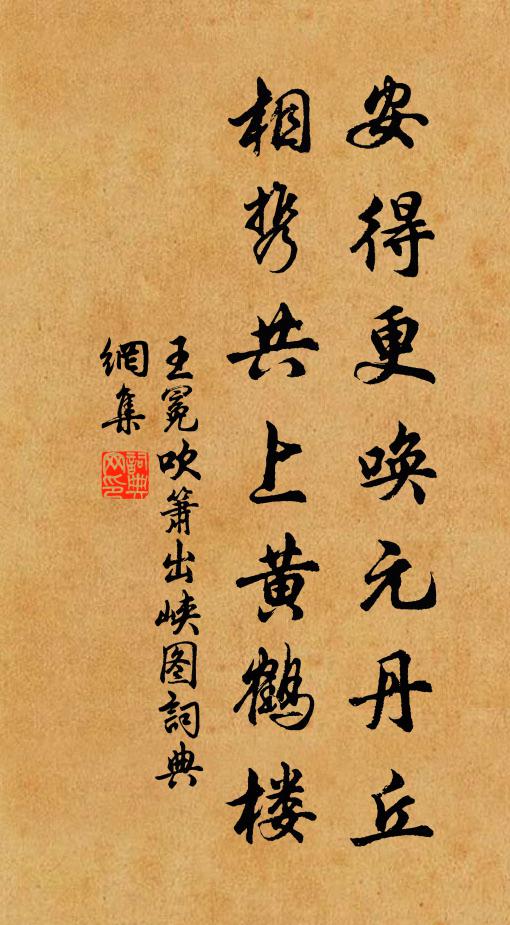 安得更唤元丹丘
相携共上黄鹤楼
王冕吹箫出峡图詞典
網集
詞典網印